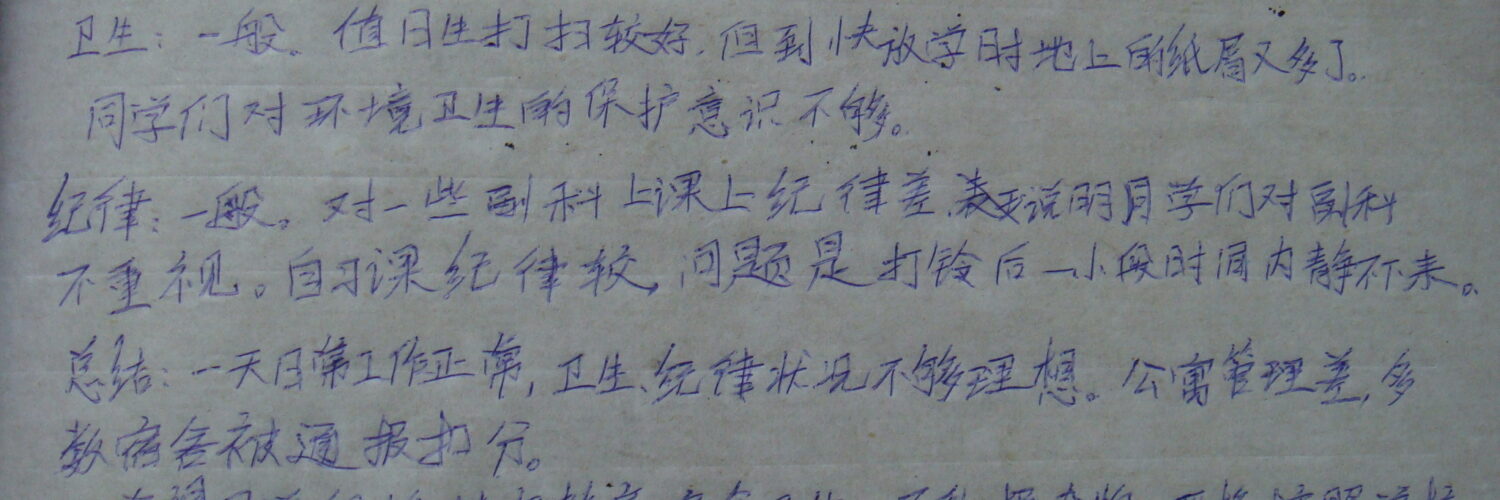 卫生：一般。值日生打扫较好，但到快放学时地上的纸屑又多了。
同学们对环境卫生的保护意识不够。
纪律：一般。对一些副科上课上纪律差，说明同学们对副科
不重视。自习课纪律较，问题是打铃后一小段时间内静不下来。
总结：一天日常工作正常，卫生、纪律状况不够理想。公寓管理差，多
数宿舍被通报扣分。